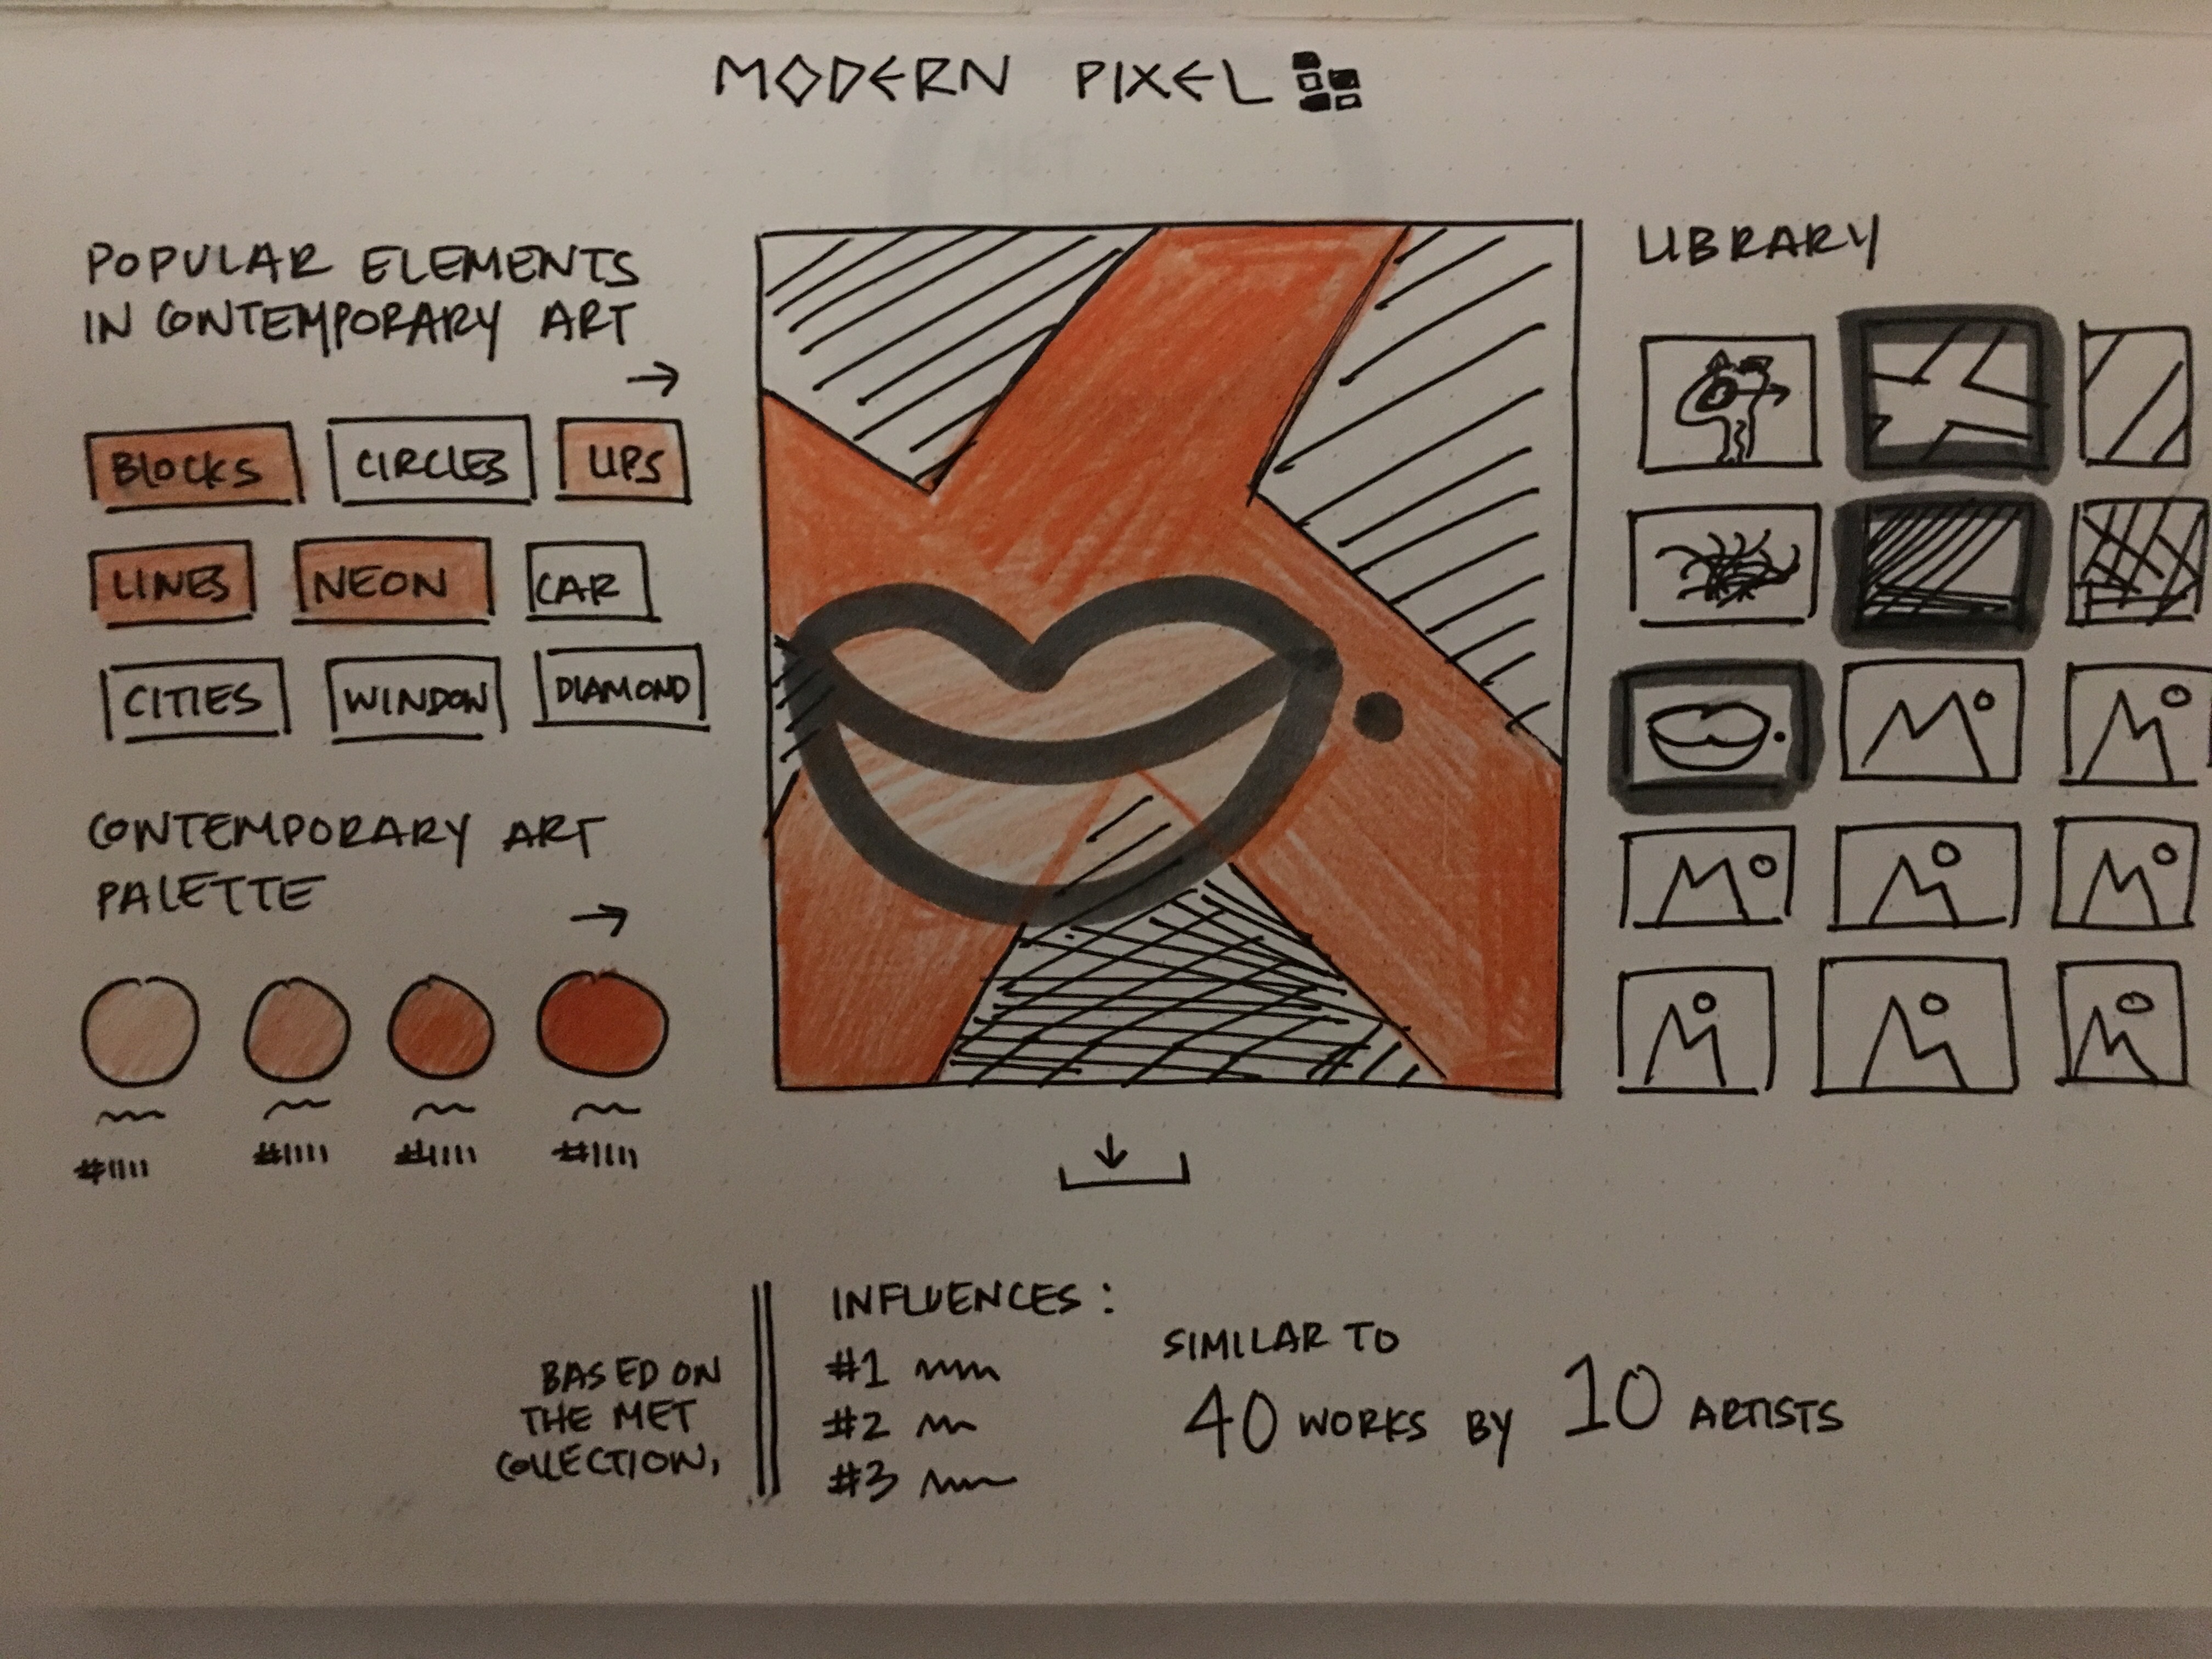 MODERN PIXEL
POPULAR ELEMENTS
IN CONTEMPORARY ART
BLOCKS
CIRCLES
LIPS
LINES
NEON
CAR
CITIES
WINDOW
DIAMOND
CONTEMPORARY ART
PALETTE
#1111
#1111
#1111
#1111
LIBRARY
BASED ON
THE MET
COLLECTION,
INFLUENCES:
#1
#2
#3
SIMILAR TO
40 WORKS BY 10 ARTISTS
MET